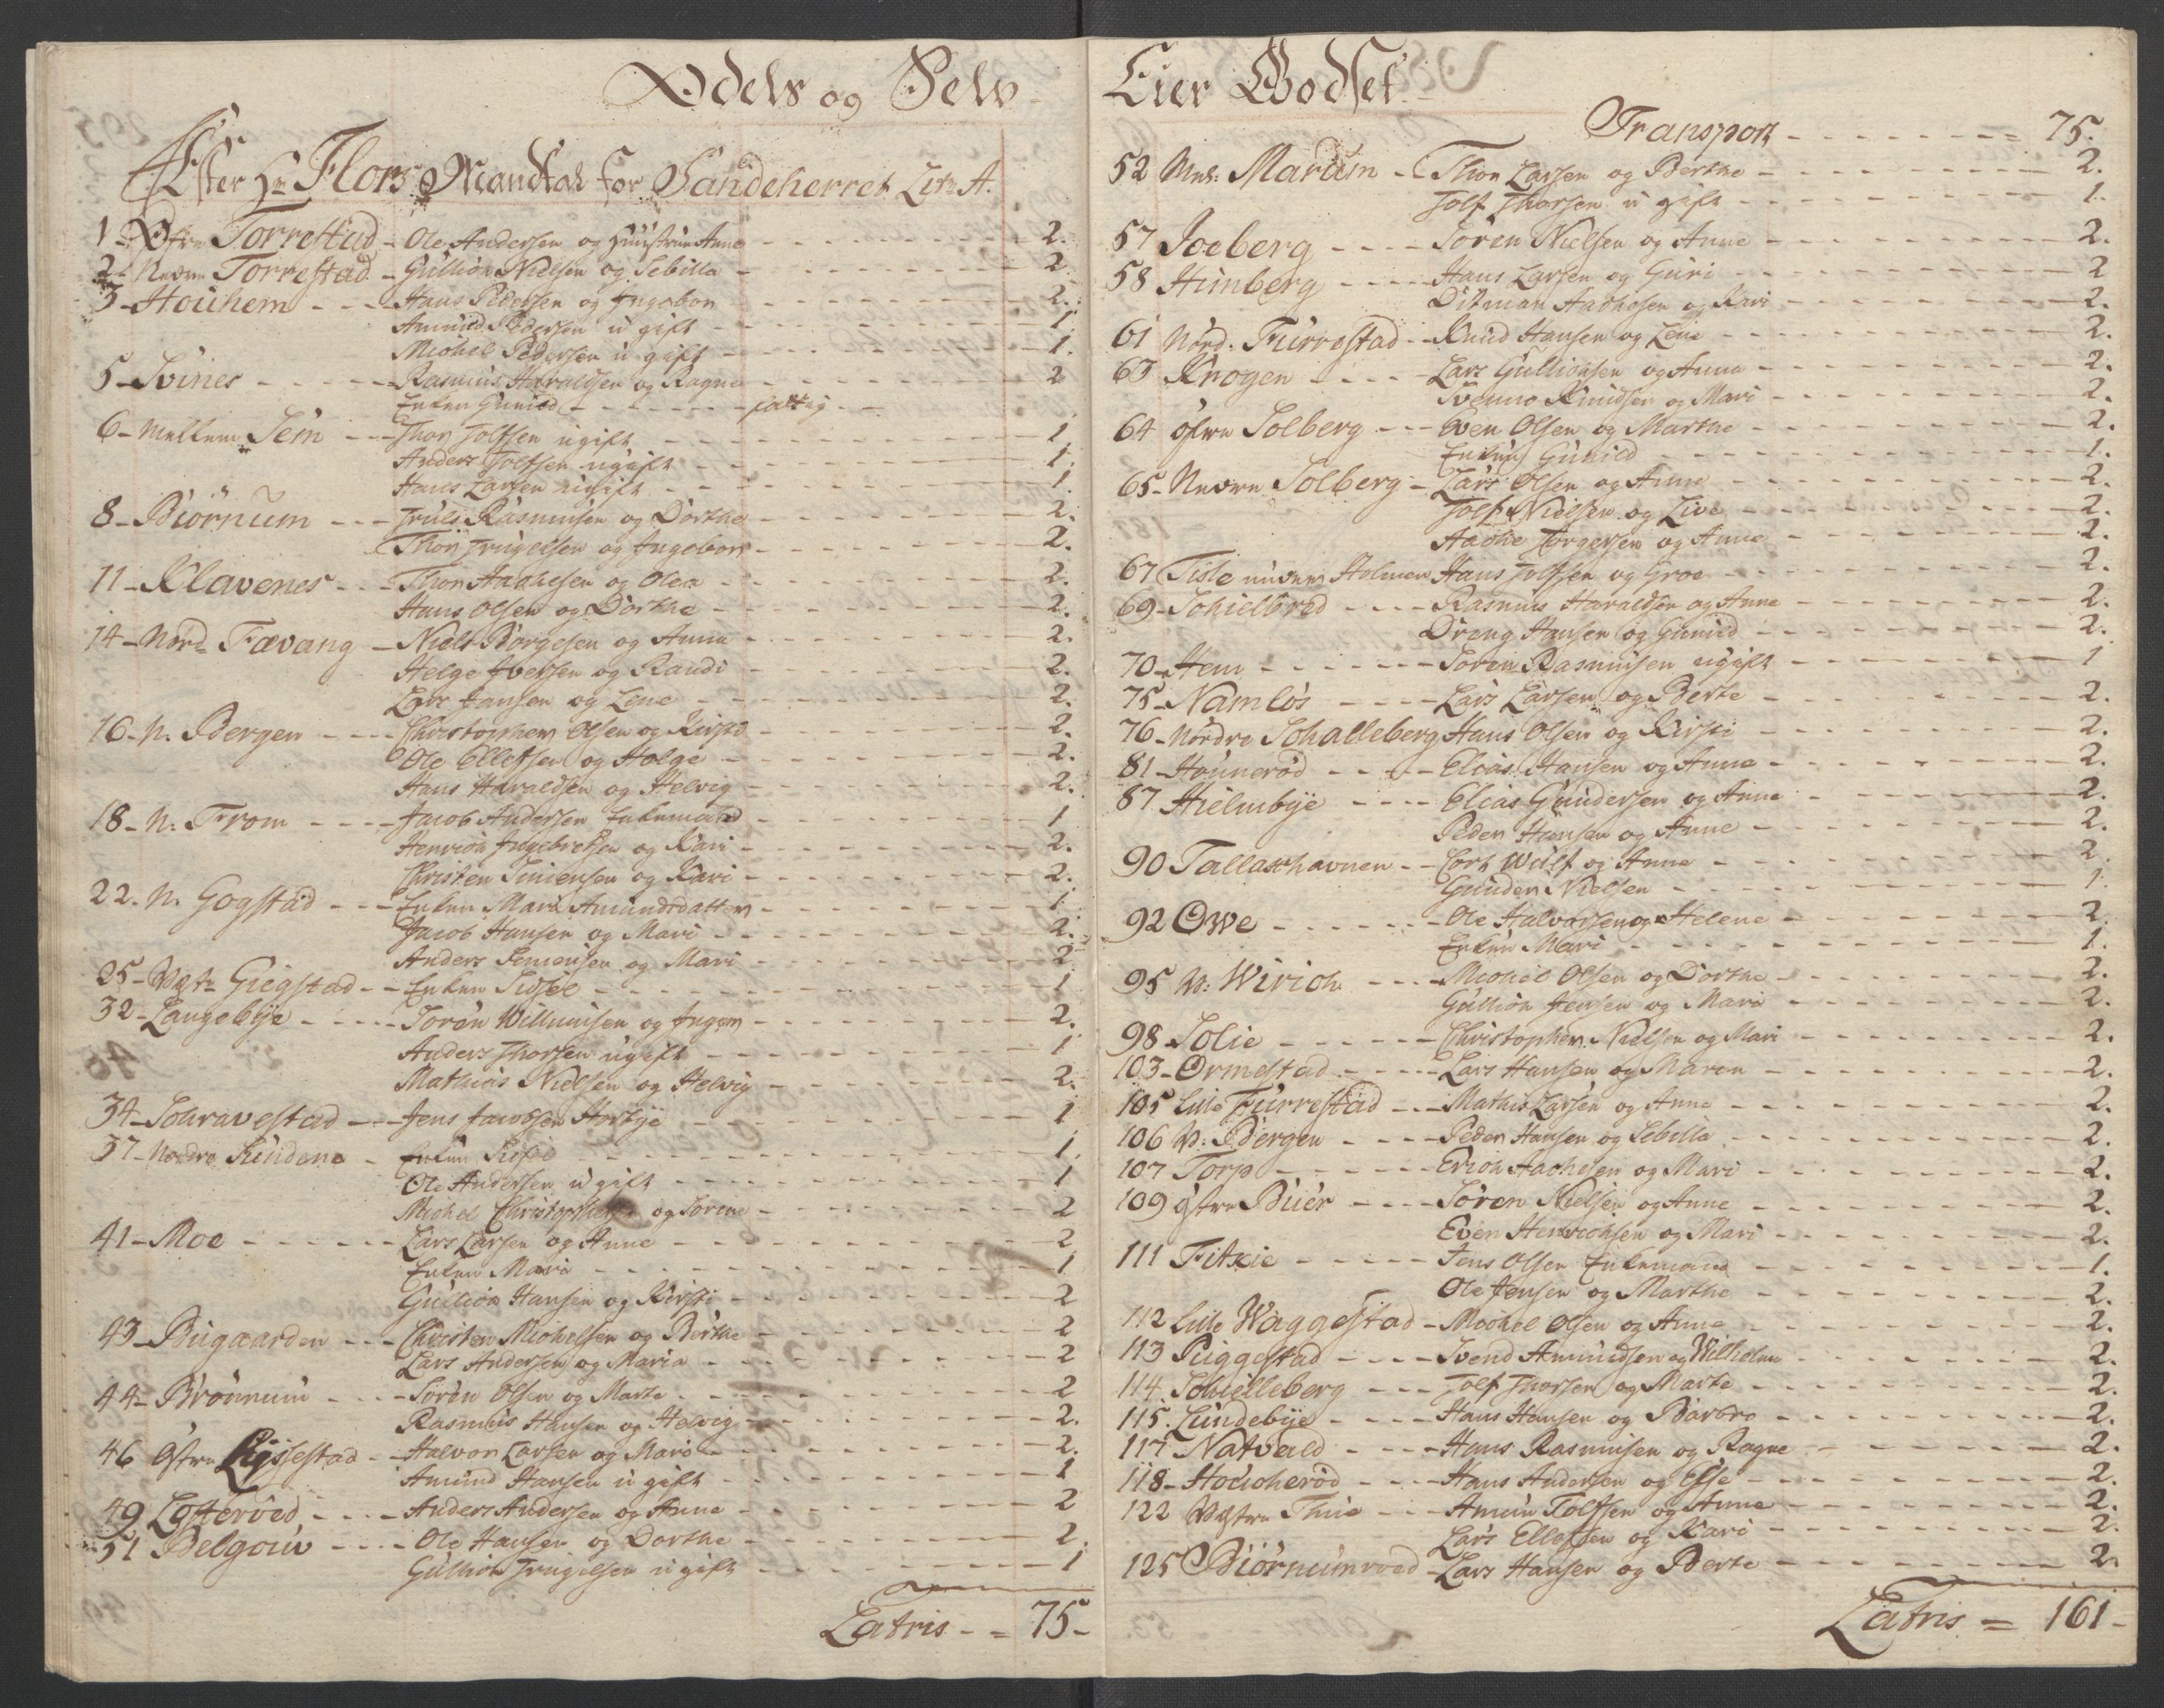 Odels og Selv
Efter Hr Flors Mandtal for Sandeherret Litr A.
1 - Øfre Torrestad - Ole Andersen og Huustrue Anne - 2.
2 - Nedre Torrestad - Gullich Nielsen og Sebilla - 2
3 - Houchem - Hans Pedersen og Ingebor - 2.
Amund Pedersen u gift - 1
Michel Pedersen u gift - 1.
5 - Svines - Rasmus Haraldsen og Ragne - 2
Enken Gunild - fattig -
6 - Mellem Sem - Thor Jolfsen ugift - 1
Anders Jolfsen ugift - 1.
Hans Larsen ugift - 1
8 - Biørnum - Truls Rasmusen og Dorthe - 2.
Thor Trugelsen og Ingebor - 2.
11 - Klavenes - Thor Aachesen og Olea - 2.
Hans Olsen og Dorthe - 2.
14 - Nordr Fævang - Niels Borgesen og Anne - 2.
Helge Iversen og Randi - 2.
Lars Hansen og Lene - 2.
16 - N. Bergen - Christopher Olsen og Kirsti - 2.
Ole Ellefsen og Helge - 2.
Hans Haraldsen og Helvig - 2.
18 - N. From - Jacob Andersen Enkemand - 1
Henrich Ingebretsen og Kari - 2.
Christen Simensen og Kari - 2.
22. N. Gogstad - Enken Mari Amundsdatter - 1
Jacob Hansen og Mari - 2.
Anders Simensen og Mari - 2
25 - Westr Giegstad - Enken Sidsel - 1
32 - Langebye - Soren Willumsen og Inger - 2.
Anders Thorsen ugift - 1
Mathias Nielsen og Helvig - 2.
34 - Schravestad - Jens Jacobsen Horbye - 1
37 - Nordre Kindene - Enken Sidsel - 1.
Ole Andersen u gift - 1
Michel Christophersen og Sorene - 2
41 - Moe - Lars Larsen og Anne - 2
Enken Mari - 1
Gullich Hansen og Kirsti - 2
43 - Bugaarden - Christen Michelsen og Berthe - 2
Lars Andersen og Maria - 2
44 - Brønnum - Soren Olsen og Marte - 2
Rasmus Hansen og Helvig - 2.
46 Østre Lysestad - Halvor Larsen og Mari - 2.
Amund Hansen u gift - 1
49 Løfterød - Anders Andersen og Anne - 2
51 Belgouv - Ole Hansen og Dorthe - 2.
Gullich Trugelsen ugift - 1
Latris - = 75 -
Eier Godset
Transport - = 75.
52 Mel: Marum - Thor Larsen og Berthe - 2.
Jolf Thorsen u gift - 1.
57 Joeberg - Søren Nielsen og Anne - 2.
58 Himberg - Hans Larsen og Guri - 2
Ditman Aachesen og Kari - 2.
61 Nord. Furrestad - Knud Hansen og Lene - 2.
63 Krogen - Lars Gullichsen og Anne - 2.
Svenno Knudsen og Mari - 2.
64 øfre Solberg - Even Olsen og Marthe - 2.
Enken Gunild - 1.
65 - Nedre Solberg - Lars Olsen og Anne - 2.
Jolf Nielsen og Live - 2.
Aache Jørgensen og Anne - 2.
67 Tisle under Holmen Hans Jolfsen og Groe - 2.
69 - Schielbred - Rasmus Haraldsen og Anne - 2.
Dreng Hansen og Gunild - 2.
70 - Hem - Soren Rasmusen ugift - 1
75 - Namløs - Lars Larsen og Berte - 2.
76 - Nordre Schalleberg Hans Olsen og Kirsti - 2.
81 - Hounerød - Elias Hansen og Anne - 2.
87 Hielmbye - Elias Gundersen og Anne - 2.
Peder Hansen og Anne - 2.
90 Tallaxhavnen - Cort Wulf og Anne - 2.
Gunder Nielsen - 1.
92 Owe - Ole Halvorsen og Helene - 2
Enken Mari - 1.
95 W. Wirich - Michel Olsen og Dorthe - 2.
Gullich Jensen og Mari - 2.
98 - Solie - Christopher Nielsen og Mari - 2.
103 - Ormestad - Lars Hansen og Maren - 2.
105 Lille Furrestad - Mathis Larsen og Anne - 2.
106 W. Bergen - Peder Hansen og Sebilla - 2.
107 Torp - Erich Aachesen og Mari - 2.
109 Østre Buer - Søren Nielsen og Anne - 2.
Even Henrichsen og Mari - 2.
111 Fitxie - Jens Olsen Enkemand - 1.
Ole Jensen og Marthe - 2.
112 Lille Waggestad - Michel Olsen og Anne - 2.
113 Puggestad - Svend Amundsen og Wilhelm - 2.
114. Schielleberg - Jolf Thorsen og Marte - 2.
115. Lundebye - Hans Hansen og Barbro - 2.
117 Natvald - Hans Rasmusen og Ragne - 2.
118 - Houcherød - Hans Andersen og Else - 2.
122 Westre Thue - Amun Tolfsen og Anne - 2.
Lars Ellefsen og Kari - 2.
125 Biørnumrød - Lars Hansen og Berte - 2.
Latris = 161 -